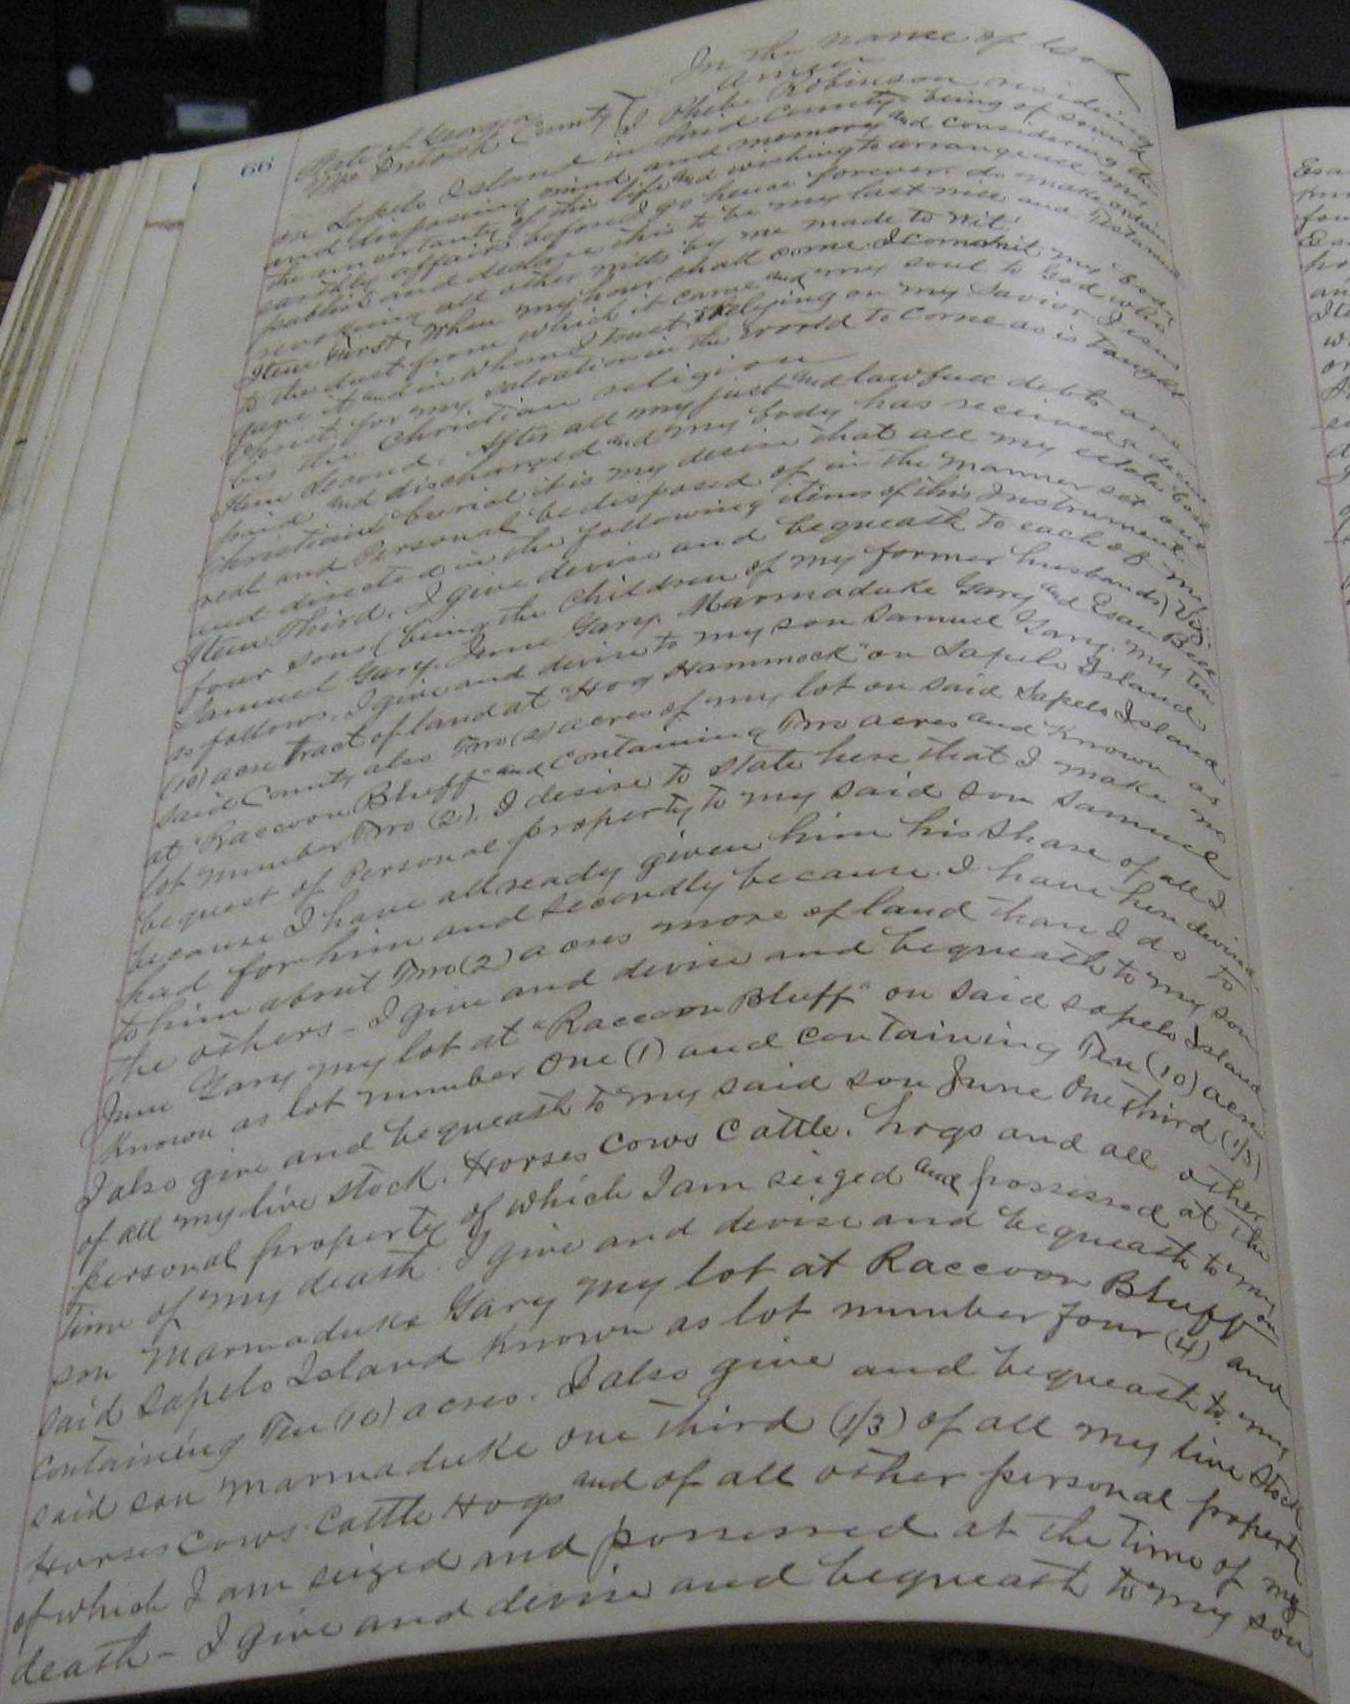 66
In the name of God
Amen
State of Georgia
McIntosh County } I Phebe Robinson residing
on Sapelo Island in said County being of sound
and disposing mind and memory and considering the
the uncertainty of this life and wishing to arrange all my
earthly affairs before I go hence forever do make ordain
publish and declare this to be my last will and Testament
revoking all other wills by me made to wit:
Item First, When my hour shall come I commit my body
to the dust from which it came and my soul to God who
gave it and in whom I trust, relying on my Savior Jesus
Christ for my salvation in the world to come as is taught
by the Christian religion
Item Second. After all my just and lawfull debts are
paid and discharged and my body has received a decent
Christian burial it is my desire that all my estate both
real and Personal be disposed of in the manner set out
and directed in the following items of this Instrument
Item Third. I give devise and bequeath to each of my
four sons (being the children of my former husbands) Viz:
Samuel Gary. June Gary. Marmaduke Gary and Esau Bell
as follows, I give and devise to my son Samuel Gary. my Ten
(10) acre tract of land at "Hog Hammock" on Sapelo Island
said County also Two (2) acres of my lot on said Sapelo Island
at "Raccoon Bluff" and containing Two acres and known as
lot number Two (2). I desire to state here that I make no
bequest of Personal property to my said son Samuel
because I have allready given him his share of all I
had for him and secondly because I have here devised
to him about Two (2) acres more of land than I do to
the others - I give and devise and bequeath to my son
June Gary my lot at "Raccoon Bluff" on said Sapelo Island
known as lot number One (1) and containing Ten (10) acres
I also give and bequeath to my said son June One third (1/3)
of all my live stock. Horses Cows Cattle. hogs and all other
personal property of which I am seized and possessed at the
time of my death. I give and devise and bequeath to my
son Marmaduke Gary my lot at Raccoon Bluff on
said Sapelo Island known as lot number four (4) and
containing Ten (10) acres. I also give and bequeath to my
said son Marmaduke one third (1/3) of all my live stock
Horses Cows Cattle Hogs and of all other personal property
of which I am seized and possessed at the time of my
death - I give and devise and bequeath to my son